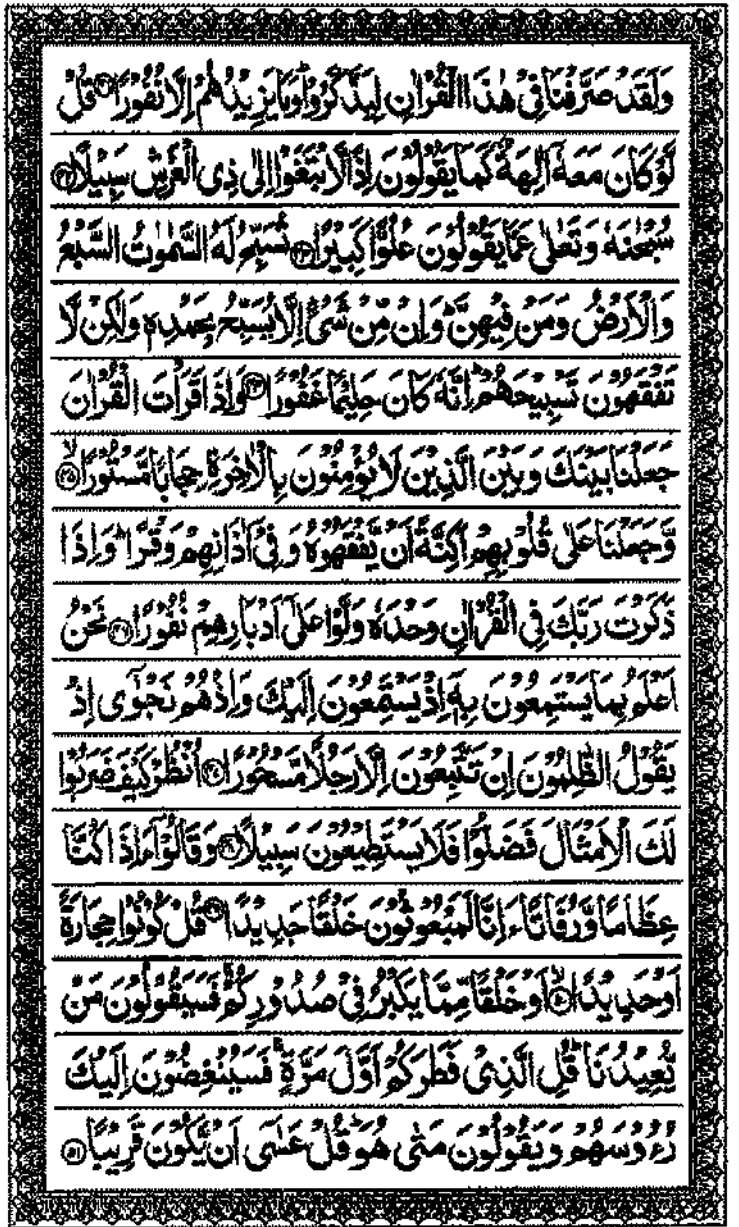 وَلَقَدْ صَرَّفْنَا فِیْ هٰذَا الْقُرْاٰنِ لِیَذَّكَّرُوْاؕ وَمَا یَزِیْدُهُمْ اِلَّا نُفُوْرًا۝۴۱ قُلْ
لَّوْ كَانَ مَعَهٗۤ اٰلِهَةٌ كَمَا یَقُوْلُوْنَ اِذًا لَّابْتَغَوْا اِلٰى ذِی الْعَرْشِ سَبِیْلًا۝۴۲
سُبْحٰنَهٗ وَتَعٰلٰى عَمَّا یَقُوْلُوْنَ عُلُوًّا كَبِیْرًا۝۴۳ تُسَبِّحُ لَهُ السَّمٰوٰتُ السَّبْعُ
وَالْاَرْضُ وَمَنْ فِیْهِنَّؕ وَاِنْ مِّنْ شَیْءٍ اِلَّا یُسَبِّحُ بِحَمْدِهٖ وَلٰكِنْ لَّا
تَفْقَهُوْنَ تَسْبِیْحَهُمْؕ اِنَّهٗ كَانَ حَلِیْمًا غَفُوْرًا۝۴۴ وَاِذَا قَرَاْتَ الْقُرْاٰنَ
جَعَلْنَا بَیْنَكَ وَبَیْنَ الَّذِیْنَ لَا یُؤْمِنُوْنَ بِالْاٰخِرَةِ حِجَابًا مَّسْتُوْرًاۙ۝۴۵
وَّجَعَلْنَا عَلٰى قُلُوْبِهِمْ اَكِنَّةً اَنْ یَّفْقَهُوْهُ وَفِیْۤ اٰذَانِهِمْ وَقْرًاؕ وَاِذَا
ذَكَرْتَ رَبَّكَ فِی الْقُرْاٰنِ وَحْدَهٗ وَلَّوْا عَلٰۤى اَدْبَارِهِمْ نُفُوْرًا۝۴۶ نَحْنُ
اَعْلَمُ بِمَا یَسْتَمِعُوْنَ بِهٖۤ اِذْ یَسْتَمِعُوْنَ اِلَیْكَ وَاِذْ هُمْ نَجْوٰۤى اِذْ
یَقُوْلُ الظّٰلِمُوْنَ اِنْ تَتَّبِعُوْنَ اِلَّا رَجُلًا مَّسْحُوْرًا۝۴۷ اُنْظُرْ كَیْفَ ضَرَبُوْا
لَكَ الْاَمْثَالَ فَضَلُّوْا فَلَا یَسْتَطِیْعُوْنَ سَبِیْلًا۝۴۸ وَقَالُوْۤا ءَاِذَا كُنَّا
عِظَامًا وَّرُفَاتًا ءَاِنَّا لَمَبْعُوْثُوْنَ خَلْقًا جَدِیْدًا۝۴۹ قُلْ كُوْنُوْا حِجَارَةً
اَوْ حَدِیْدًاۙ۝۵۰ اَوْ خَلْقًا مِّمَّا یَكْبُرُ فِیْ صُدُوْرِكُمْۚ فَسَیَقُوْلُوْنَ مَنْ
یُّعِیْدُنَاؕ قُلِ الَّذِیْ فَطَرَكُمْ اَوَّلَ مَرَّةٍۚ فَسَیُنْغِضُوْنَ اِلَیْكَ
رُءُوْسَهُمْ وَیَقُوْلُوْنَ مَتٰى هُوَؕ قُلْ عَسٰۤى اَنْ یَّكُوْنَ قَرِیْبًا۝۵۱